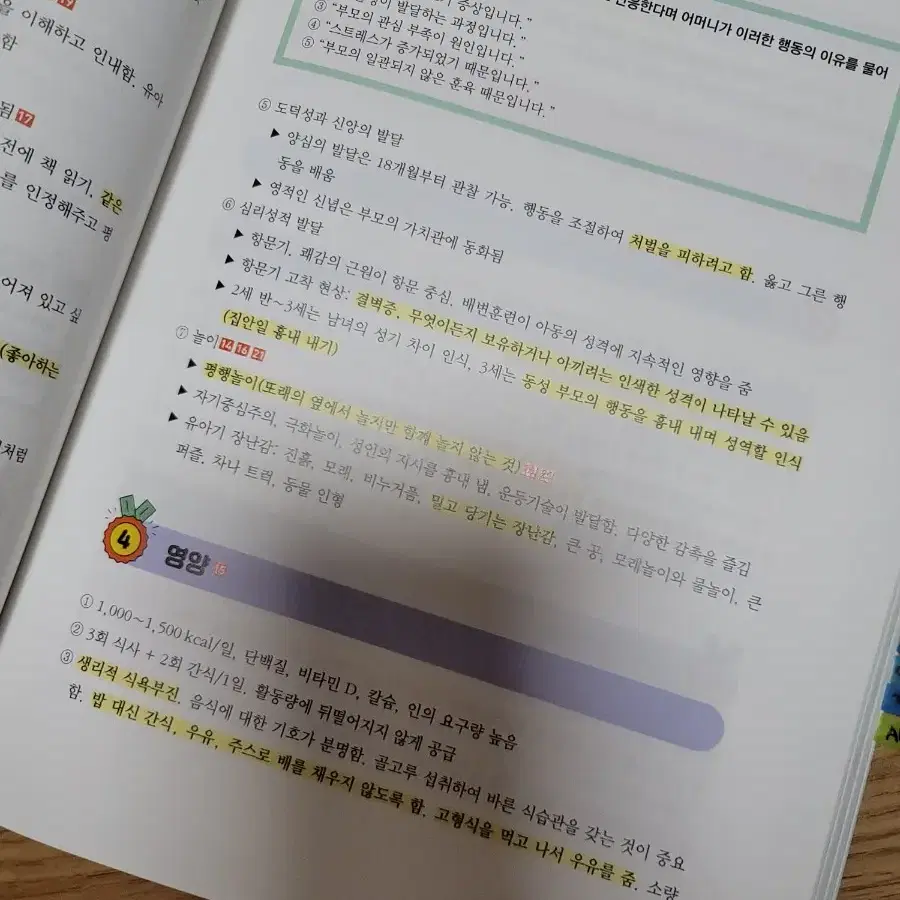 을 이해하고 인내함. 유아
함
됨 17
전에 책 읽기, 같은
를 인정해주고 평
어져 있고 싶
(좋아하는
처럼
반응한다며 어머니가 이러한 행동의 이유를 물어
증상입니다.”
③ 발달하는 과정입니다.”
④ “부모의 관심 부족이 원인입니다.”
④ “스트레스가 증가되었기 때문입니다.”
⑤ “부모의 일관되지 않은 훈육 때문입니다.”
⑤ 도덕성과 신앙의 발달
▶ 양심의 발달은 18개월부터 관찰 가능. 행동을 조절하여 처벌을 피하려고 함. 옳고 그른 행
동을 배움
▶ 영적인 신념은 부모의 가치관에 동화됨
⑥ 심리성적 발달
▶ 항문기, 쾌감의 근원이 항문 중심, 배변훈련이 아동의 성격에 지속적인 영향을 줌
▶ 항문기 고착 현상: 결벽증, 무엇이든지 보유하거나 아끼려는 인색한 성격이 나타날 수 있음
▶ 2세 반~3세는 남녀의 성기 차이 인식, 3세는 동성 부모의 행동을 흉내 내며 성역할 인식
(집안일 흉내 내기)
⑦ 놀이 14 16 21
▶ 평행놀이(또래의 옆에서 놀지만 함께 놀지 않는 것)
▶ 자기중심주의, 극화놀이, 성인의 지시를 흉내 냄, 운동기술이 발달함. 다양한 감촉을 즐김
▶ 유아기 장난감: 진흙, 모래, 비누거품, 밀고 당기는 장난감, 큰 공, 모래놀이와 물놀이, 큰
퍼즐, 차나 트럭, 동물 인형
4 영양 15
① 1,000~1,500kcal/일, 단백질, 비타민 D, 칼슘, 인의 요구량 높음
② 3회 식사 + 2회 간식/1일. 활동량에 뒤떨어지지 않게 공급
③ 생리적 식욕부진. 음식에 대한 기호가 분명함. 골고루 섭취하여 바른 식습관을 갖는 것이 중요
함. 밥 대신 간식, 우유, 주스로 배를 채우지 않도록 함. 고형식을 먹고 나서 우유를 줌. 소량